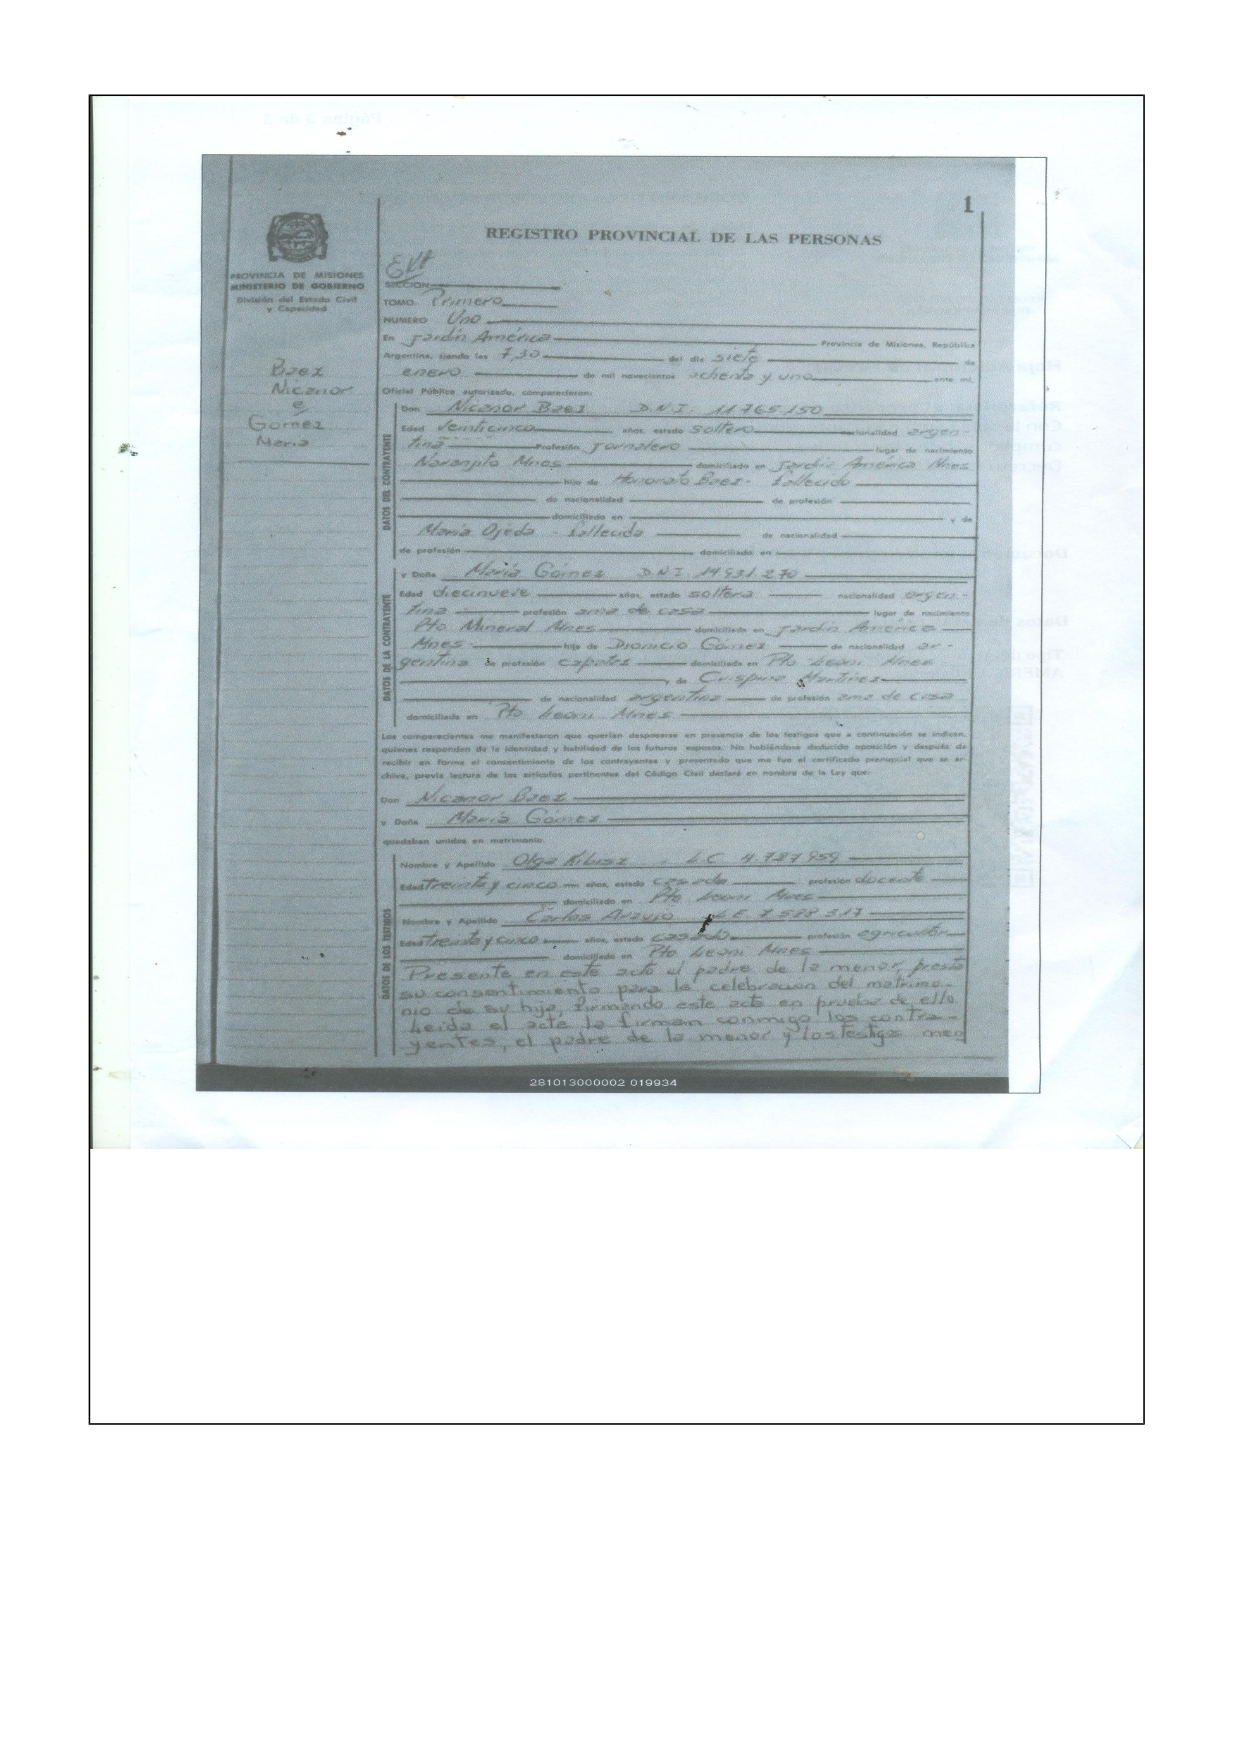 1
REGISTRO PROVINCIAL DE LAS PERSONAS
PROVINCIA DE MISIONES
MINISTERIO DE GOBIERNO
División del Estado Civil
y Capacidad
Baez
Nicanor
e
Gomez
Maria
SECCION
TOMO: Primero
NUMERO Uno
En Jardín América Provincia de Misiones, República
Argentina, siendo las 7,30 del día siete de
enero de mil novecientos ochenta y uno ante mí,
Oficial Público autorizado, comparecieron:
DATOS DEL CONTRAYENTE
Don Nicanor Baez D.N.I. 11.765.150
Edad veinticinco años, estado soltero nacionalidad argen-
tina Profesión Jornalero lugar de nacimiento
Naranjito Mnes domiciliado en Jardín América Mnes
hijo de Honorato Baez - fallecido
de nacionalidad de profesión
domiciliado en y de
María Ojeda - fallecida de nacionalidad
de profesión domiciliado en
DATOS DE LA CONTRAYENTE
y Doña María Gómez D.N.I. 14.931.270
Edad diecinueve años, estado soltera nacionalidad argen-
tina profesión ama de casa lugar de nacimiento
Pto Mineral Mnes domiciliado en Jardín América
Mnes hija de Dionicio Gómez de nacionalidad ar-
gentina de profesión capataz domiciliado en Pto Leoni Mnes
y de Crispina Martínez
de nacionalidad argentina de profesión ama de casa
domiciliado en Pto Leoni Mnes
Los comparecientes me manifestaron que querían desposarse en presencia de los testigos que a continuación se indican,
quienes responden de la identidad y habilidad de los futuros esposos. No habiéndose deducido oposición y después de
recibir en forma el consentimiento de los contrayentes y presentado que me fue el certificado prenupcial que se ar-
chiva, previa lectura de los artículos pertinentes del Código Civil declaré en nombre de la Ley que:
Don Nicanor Baez
y Doña María Gómez
quedaban unidos en matrimonio.
DATOS DE LOS TESTIGOS
Nombre y Apellido Olga L.C. 4.727.959
Edad treinta y cinco años, estado casada profesión docente
domiciliado en Pto Leoni Mnes
Nombre y Apellido Carlos Araujo L.E. 7.588.517
Edad treinta y cinco años, estado casado profesión agricultor
domiciliado en Pto Leoni Mnes
Presente en este acto el padre de la menor, presta
su consentimiento para la celebración del matrimo-
nio de su hija, firmando este acta en prueba de ello
Leida el acta la firman conmigo los contra-
yentes, el padre de la menor y los testigos
281013000002 019934